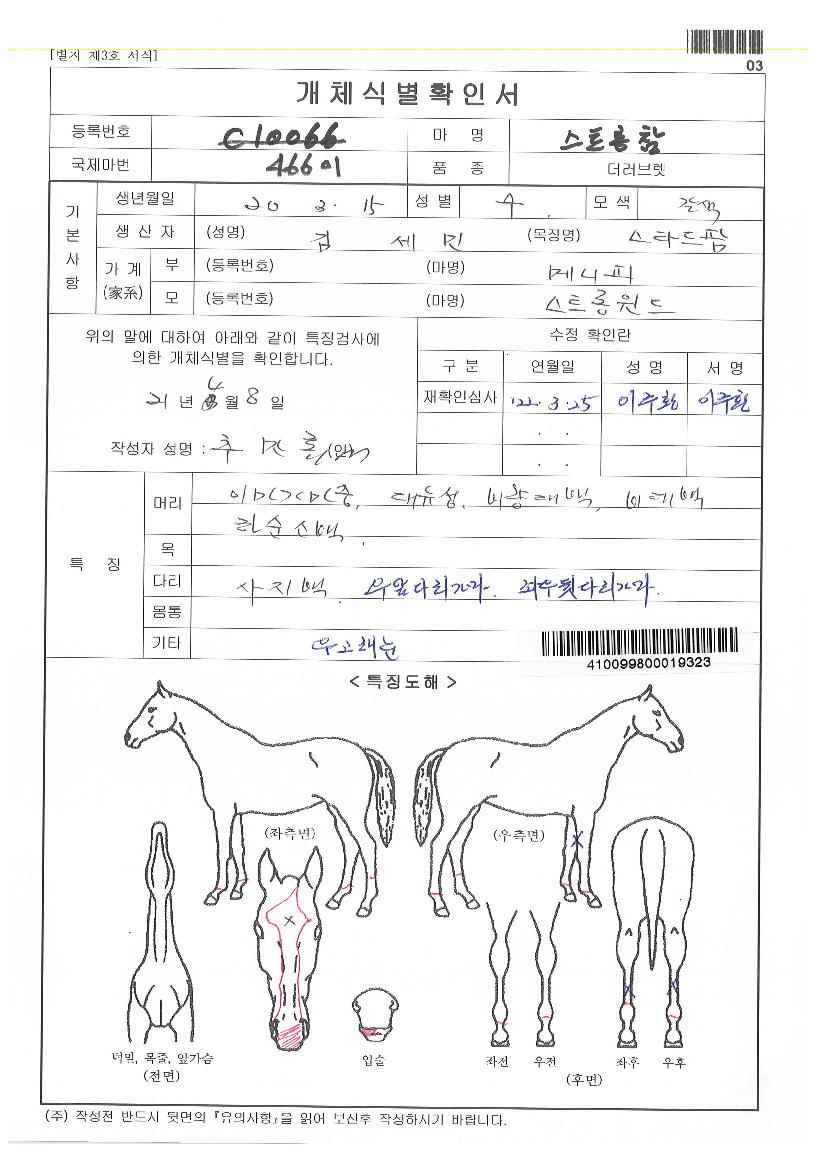 [별지 제3호 서식]
03
개체식별확인서
등록번호 C10066 마 명 스트롱참
국제마번 46601 품 종 더러브렛
기본사항
생년월일 20 3. 15 성 별 수 모 색 갈색
생 산 자 (성명) 김 세 민 (목장명) 스타드팜
가 계 (家系) 부 (등록번호) (마명) 메니피
모 (등록번호) (마명) 스트롱윈드
위의 말에 대하여 아래와 같이 특징검사에
의한 개체식별을 확인합니다.
21 년 4 월 8 일
작성자 성명 : 추 민
수정 확인란
구 분 연월일 성 명 서 명
재확인심사 '22. 3. 25 이주환 이주환
. .
. .
특 징
머리 대유성, 비량대백, 비백
하순백
목
다리 사지백 우앞다리가마. 좌우뒷다리가마.
몸통
기타
410099800019323
< 특징도해 >
(좌측면) (우측면)
턱밑, 목줄, 앞가슴
(전면)
입술
좌전 우전 좌후 우후
(후면)
(주) 작성전 반드시 뒷면의 『유의사항』을 읽어 보신후 작성하시기 바랍니다.